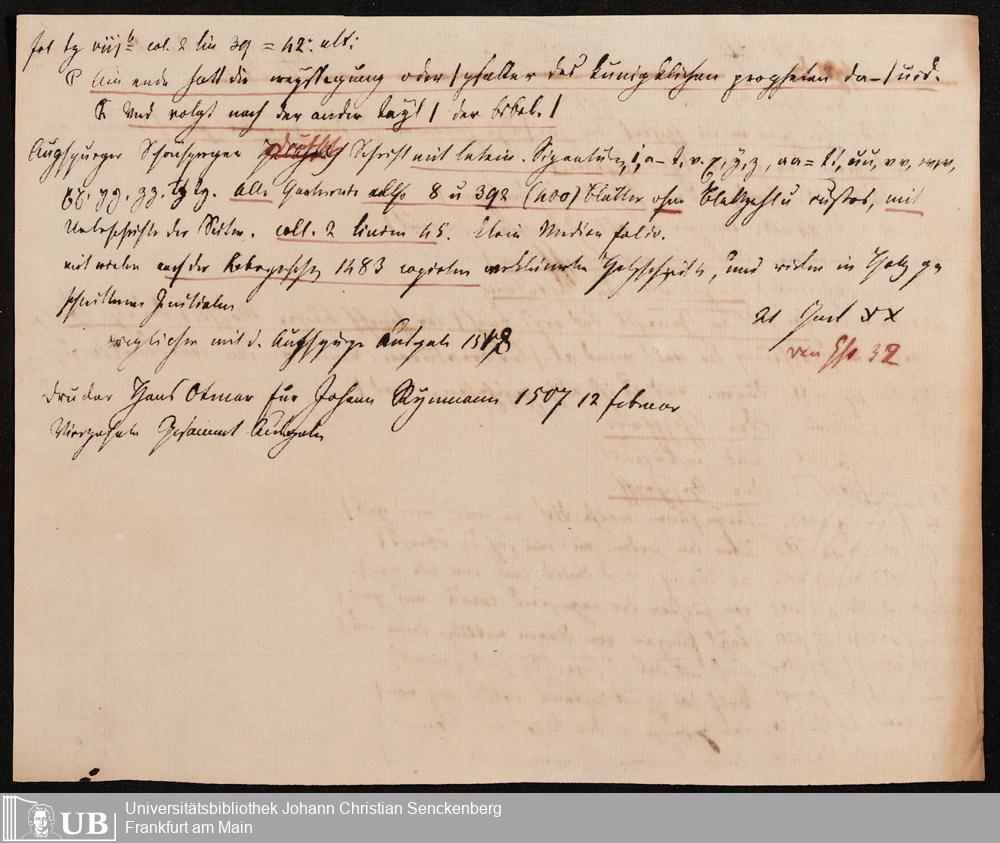 fol tz viij b col. 2 lin 39 = 42. ult:
Ain ende hatt die weyssagung oder / psalter des kunigklichen propheten da-/uid.
Und volgt nach der ander tayl / der bibel. /
Augspurger Schönsperger Schrift mit latein. Signaturen, a–t, v. x, y, z, aa = tt, uu, vv, ww,
xx. yy. zz. tz. Alle Quaternio also 8 u 392 (400) Blätter ohne Blattzahlen u custos, mit
Ueberschriften der Seiten. coll. 2 linien 45. klein Median folio.
mit vielen nach der Kobergischen 1483 copirten verkleinerten Holzschnitten, und vielen in Holz ge
schnittenen Initialen
2t Theil XX
verglichen mit d. Augspurger Ausgabe 1518
von Ess 32
Drucker Hans Otmar für Johann Rynmann 1507 12 februar
Vierzehnte Gesammt Ausgabe
Universitätsbibliothek Johann Christian Senckenberg
UB Frankfurt am Main